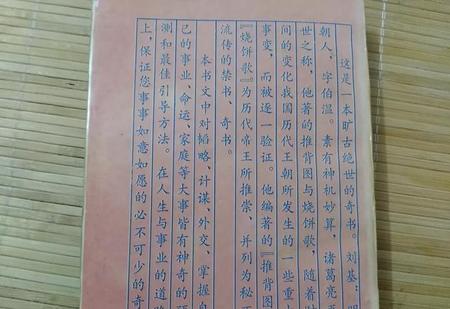 这是一本旷古绝世的奇书。刘基:明
朝人,字伯温。素有神机妙算,诸葛亮
世之称,他著的推背图与烧饼歌,随着时
间的变化我国历代王朝所发生的一些重
事变,而被逐一验证。他编著的『推背图
『烧饼歌』为历代帝王所推崇、并列为秘
流传的禁书、奇书。
本书文中对韬略、计谋、外交、掌握自
己的事业、命运、家庭等大事皆有神奇的
测和最佳引导方法。在人生与事业的道路
上,保证您事事如意如愿的必不可少的奇